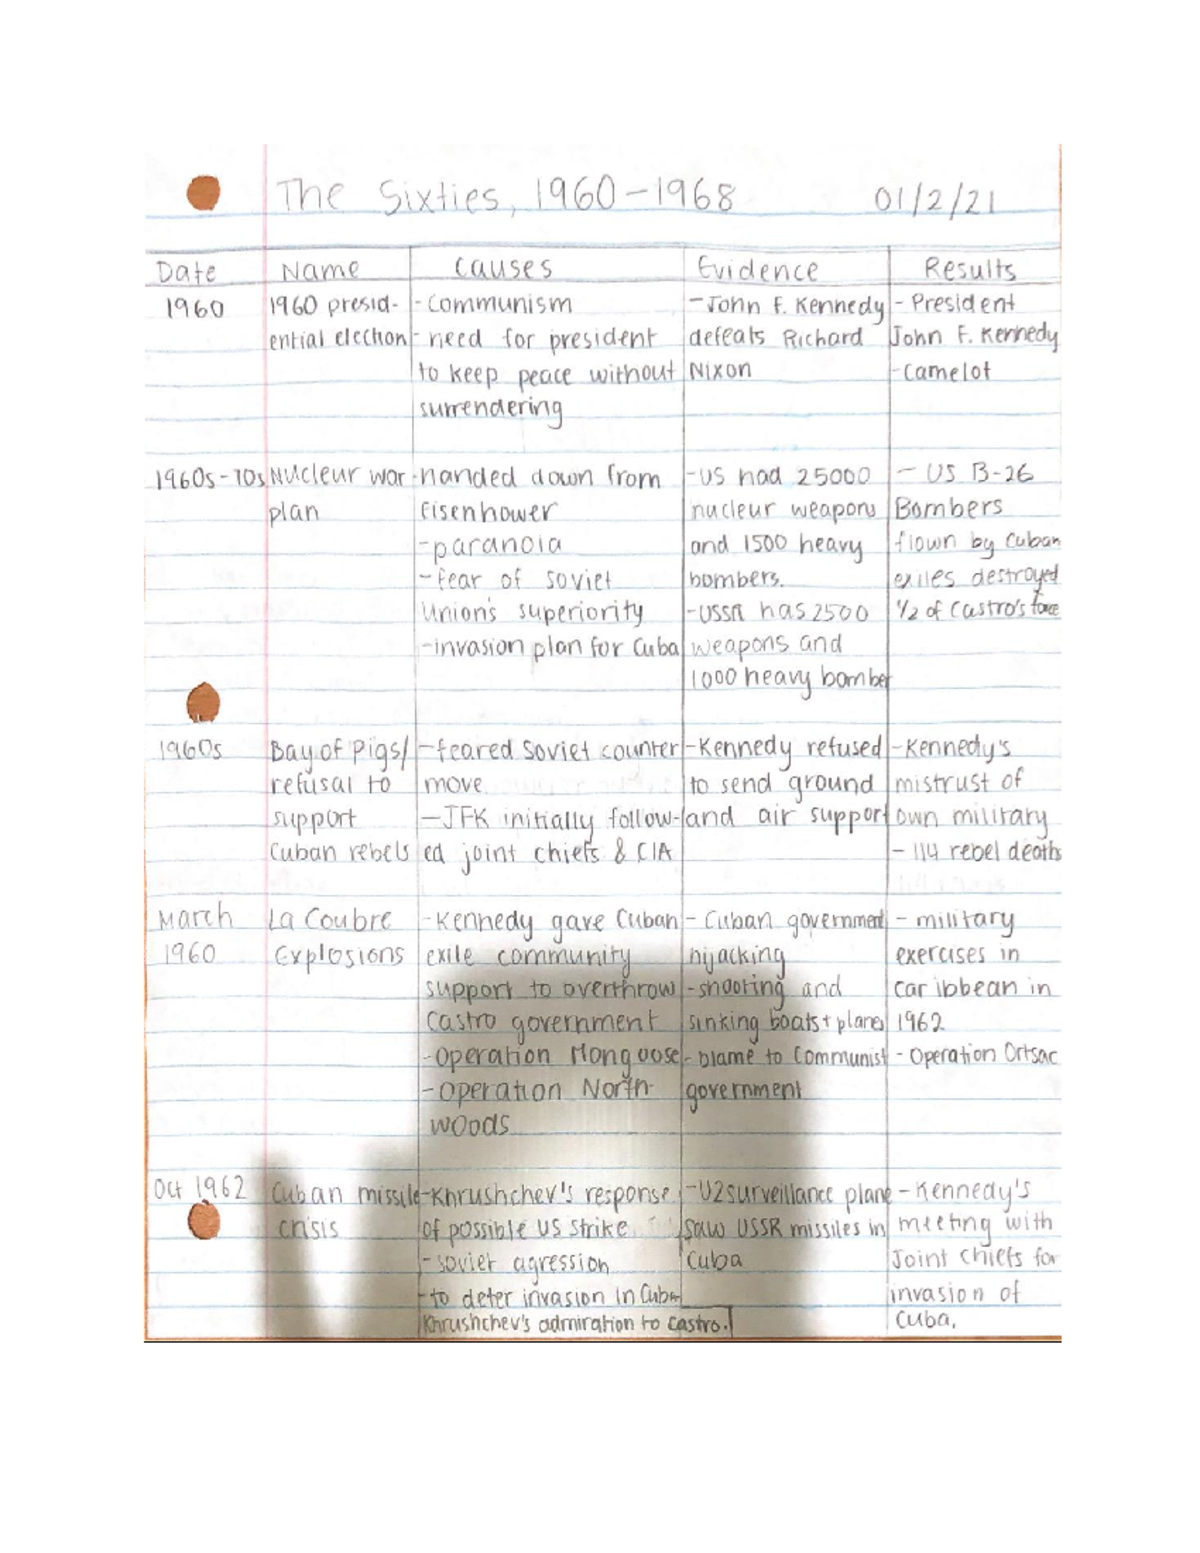 The Sixties, 1960-1968 01/2/21
Date Name Causes Evidence Results
1960 1960 presid- -Communism -John F. Kennedy - President
ential election - need for president defeats Richard John F. Kennedy
to keep peace without Nixon -Camelot
surrendering
1960s-70s Nucleur war -handed down from -US had 25000 - US B-26
plan Eisenhower nucleur weapons Bombers
-paranoia and 1500 heavy flown by Cuban
-fear of soviet bombers. exiles destroyed
Union's superiority -USSR has 2500 1/2 of Castro's force
-invasion plan for Cuba weapons and
1000 heavy bomber
1960s Bay of Pigs/ -feared Soviet counter -Kennedy refused -Kennedy's
refusal to move to send ground mistrust of
support -JFK initially follow- and air support own military
Cuban rebels ed joint chiefs & CIA - 114 rebel deaths
March La Coubre -Kennedy gave Cuban - Cuban government - military
1960 Explosions exile community hijacking exercises in
support to overthrow -shooting and caribbean in
Castro government sinking boats + planes 1962
-Operation Mongoose - blame to Communist - Operation Ortsac
-Operation North- government
woods
Oct 1962 Cuban missile -Khrushchev's response -U2 surveillance plane - Kennedy's
crisis of possible US strike saw USSR missiles in meeting with
-soviet agression Cuba Joint chiefs for
-to deter invasion in Cuba invasion of
Khrushchev's admiration to Castro. Cuba.